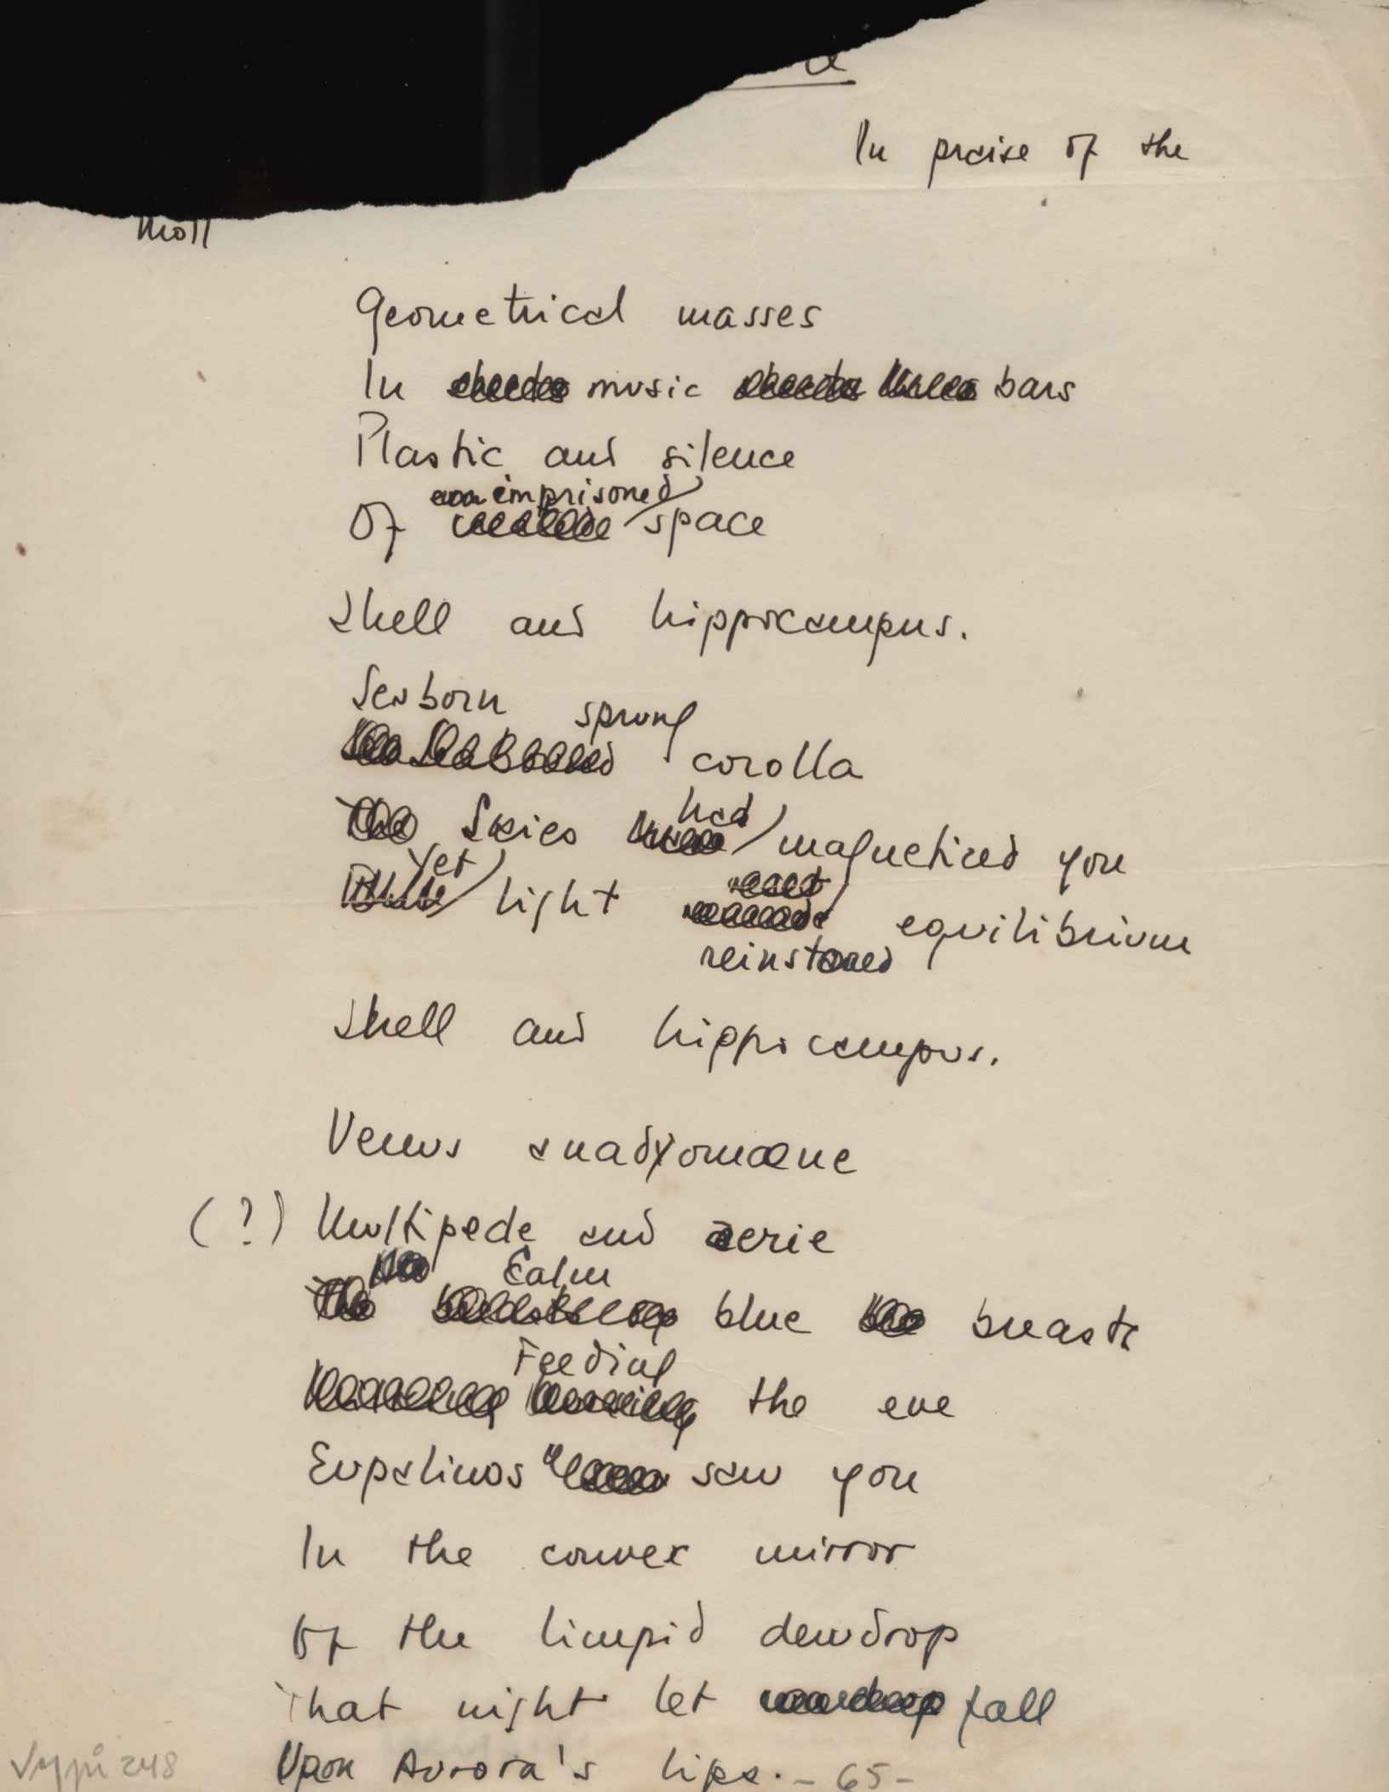 In praise of the
moll
Geometrical masses
In music bars
Plastic and silence
imprisoned
Of space
Shell and hippocampus.
Seaborn sprung
corolla
The Skies had magnetized you
Yet light equilibrium
reinstored
Shell and hippocampus.
Venus anadyomaene
(?) Multipede and aerie
Calm
The blue breasts
Feeding
the eve
Eupalinos saw you
In the convex mirror
Of the limpid dewdrop
That night let fall
Upon Aurora's lips. - 65 -